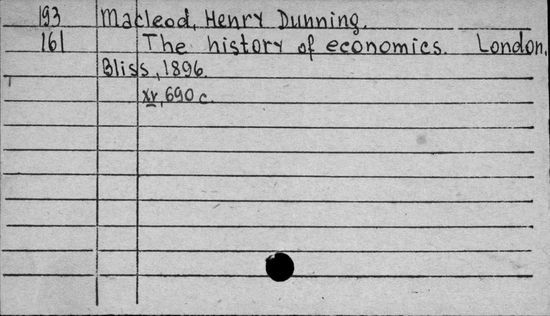 193 Macleod, Henry Dunning.
161 The history of economics. London,
Bliss, 1896.
xv, 690 c.